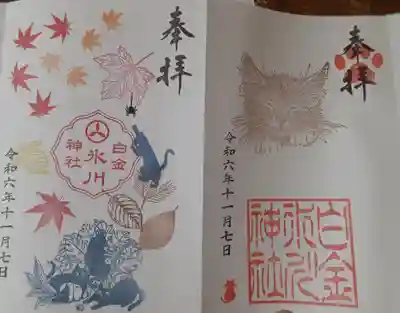 奉拝
白金
氷川
神社
令和六年十一月七日
奉拝
令和六年十一月七日
白金
氷川
神社